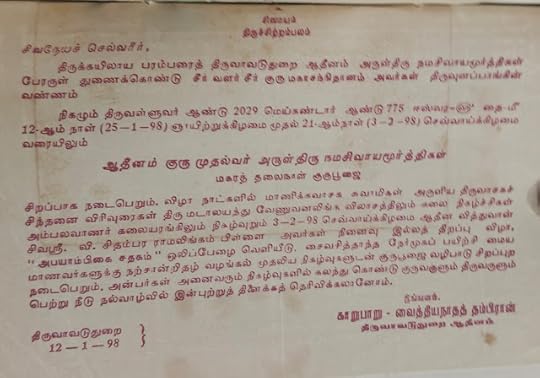 சிவமயம்
திருச்சிற்றம்பலம்
சிவநேயச் செல்வரீர்,
திருக்கயிலாய பரம்பரைத் திருவாவடுதுறை ஆதீனம் அருள்திரு நமசிவாயமூர்த்திகள்
பேரருள் துணைக்கொண்டு சீர் வளர் சீர் குரு மகாசந்நிதானம் அவர்கள் திருவுளப்பாங்கின்
வண்ணம்
நிகழும் திருவள்ளுவர் ஆண்டு 2029 மெய்கண்டார் ஆண்டு 775 ஈஸ்வர ௵ தை ௴
12-ஆம் நாள் (25-1-98) ஞாயிற்றுக்கிழமை முதல் 21-ஆம்நாள் (3-2-98) செவ்வாய்க்கிழமை
வரையிலும்
ஆதீனம் குரு முதல்வர் அருள்திரு நமசிவாயமூர்த்திகள்
மகரத் தலைநாள் குருபூஜை
சிறப்பாக நடைபெறும். விழா நாட்களில் மாணிக்கவாசக சுவாமிகள் அருளிய திருவாசகச்
சிந்தனை விரிவுரைகள் திரு மடாலயத்து வேணுவனலிங்க விலாசத்திலும் கலை நிகழ்ச்சிகள்
அம்பலவாணர் கலையரங்கிலும் நிகழ்வுறும் 3-2-98 செவ்வாய்க்கிழமை ஆதீன வித்துவான்
சிவஸ்ரீ. வி. சிதம்பர ராமலிங்கம் பிள்ளை அவர்கள் நினைவு இல்லத் திறப்பு விழா,
"அபயாம்பிகை சதகம்" ஒலிப்பேழை வெளியீடு, சைவசித்தாந்த நேர்முகப் பயிற்சி மைய
மாணவர்களுக்கு நற்சான்றிதழ் வழங்கல் முதலிய நிகழ்வுகளுடன் குருபூஜை வழிபாடு சிறப்புற
நடைபெறும். அன்பர்கள் அனைவரும் நிகழ்வுகளில் கலந்து கொண்டு குருவருளும் திருவருளும்
பெற்று நீடு நல்வாழ்வில் இன்புற்றுத் திளைக்கத் தெரிவிக்கலானோம்.
இங்ஙனம்,
காறுபாறு - வைத்தியநாதத் தம்பிரான்
திருவாவடுதுறை ஆதீனம்
திருவாவடுதுறை
12-1-98